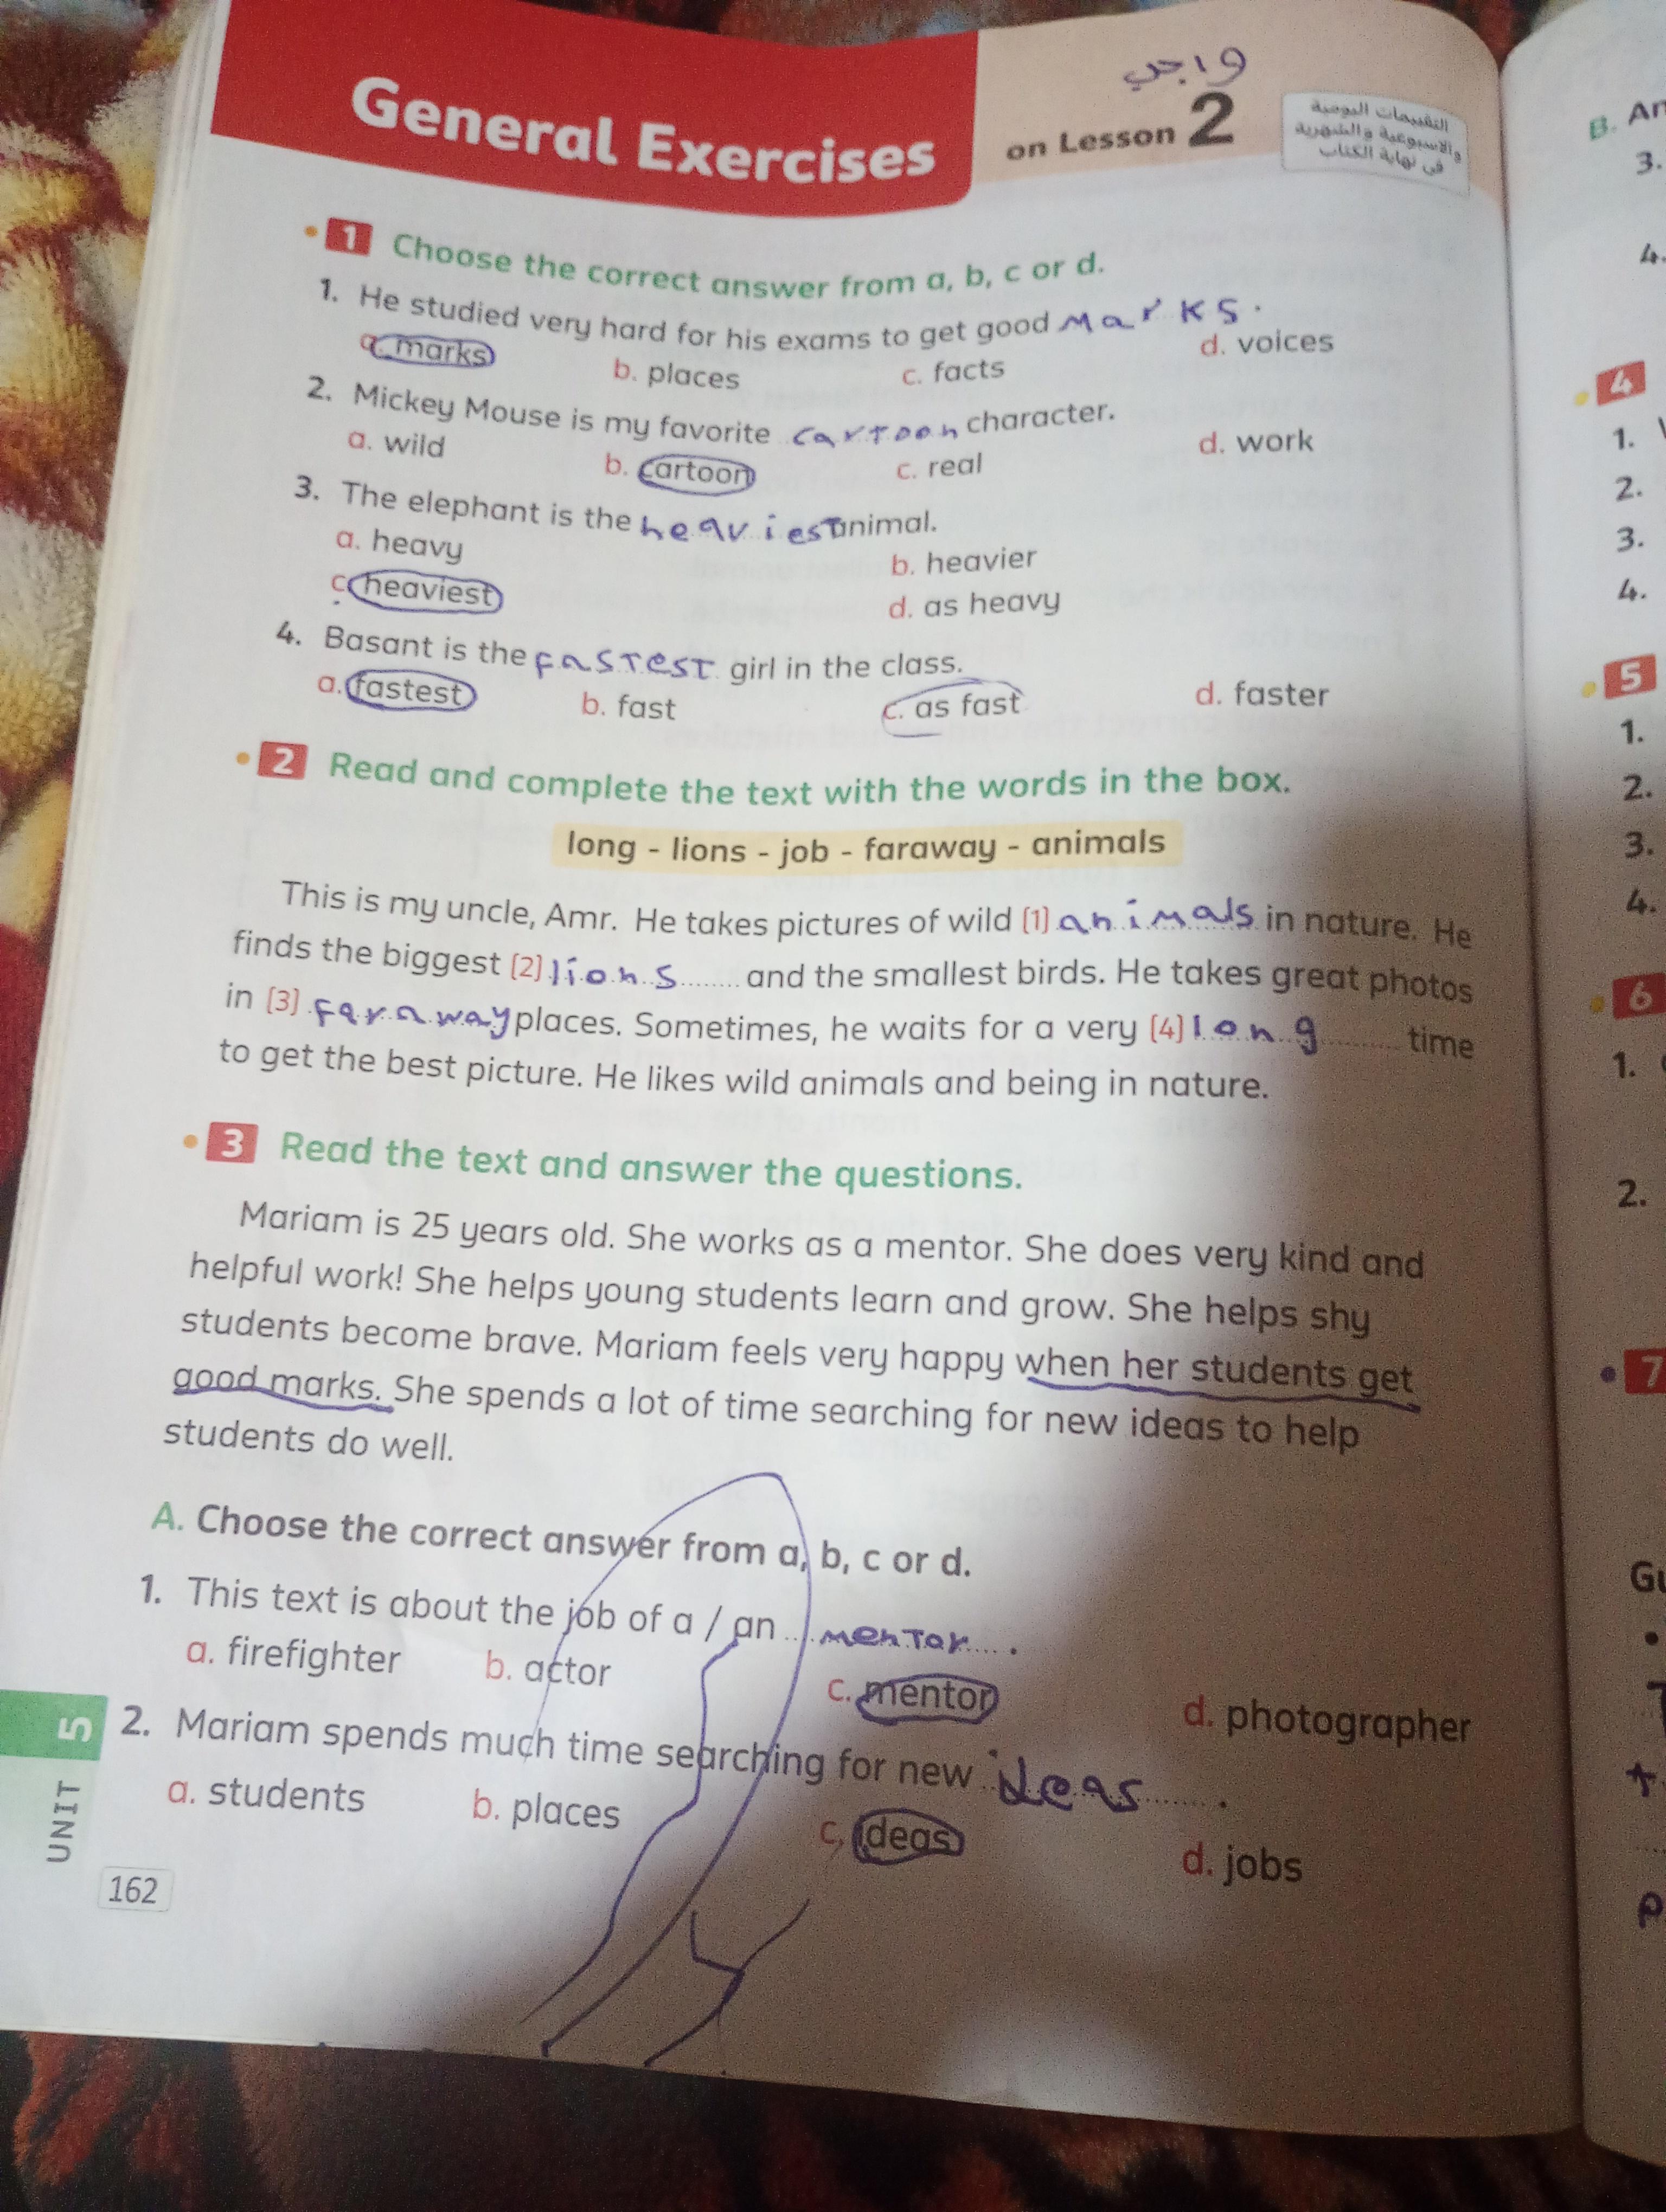 واجب
General Exercises on Lesson 2
التقييمات اليومية
والأسبوعية والشهرية
فى نهاية الكتاب
1 Choose the correct answer from a, b, c or d.
1. He studied very hard for his exams to get good Marks.
a. marks b. places c. facts d. voices
2. Mickey Mouse is my favorite cartoon character.
a. wild b. cartoon c. real d. work
3. The elephant is the heaviest animal.
a. heavy b. heavier
c. heaviest d. as heavy
4. Basant is the fastest girl in the class.
a. fastest b. fast c. as fast d. faster
2 Read and complete the text with the words in the box.
long - lions - job - faraway - animals
This is my uncle, Amr. He takes pictures of wild (1) animals in nature. He
finds the biggest (2) lions and the smallest birds. He takes great photos
in (3) faraway places. Sometimes, he waits for a very (4) long time
to get the best picture. He likes wild animals and being in nature.
3 Read the text and answer the questions.
Mariam is 25 years old. She works as a mentor. She does very kind and
helpful work! She helps young students learn and grow. She helps shy
students become brave. Mariam feels very happy when her students get
good marks. She spends a lot of time searching for new ideas to help
students do well.
A. Choose the correct answer from a, b, c or d.
1. This text is about the job of a / an mentor.
a. firefighter b. actor c. mentor d. photographer
2. Mariam spends much time searching for new ideas.
a. students b. places c. ideas d. jobs
UNIT 5
162
B. An
3.
4.
4
1.
2.
3.
4.
5
1.
2.
3.
4.
6
1.
2.
7